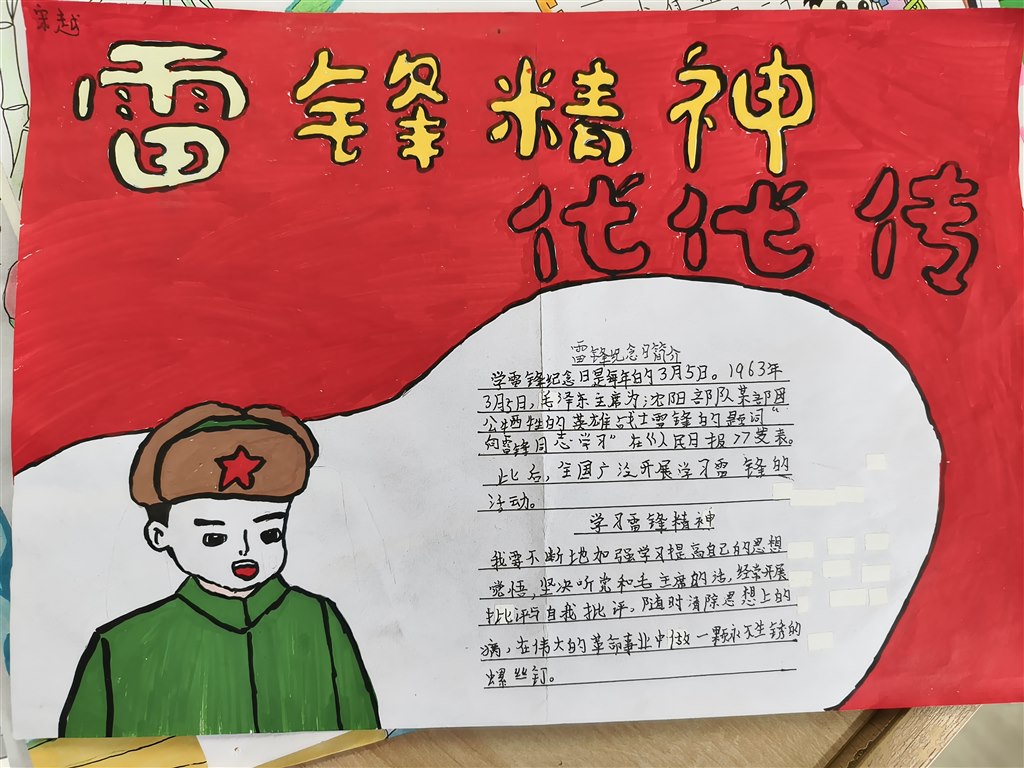 宋越
雷锋精神
代代传
雷锋纪念日简介
学雷锋纪念日是每年的3月5日。1963年
3月5日,毛泽东主席为沈阳部队某部因
公牺牲的英雄战士雷锋的题词“
向雷锋同志学习”在《人民日报》发表。
此后,全国广泛开展学习雷锋的
活动。
学习雷锋精神
我要不断地加强学习提高自己的思想
觉悟,坚决听党和毛主席的话,经常开展
批评与自我批评,随时清除思想上的
病,在伟大的革命事业中做一颗永不生锈的
螺丝钉。